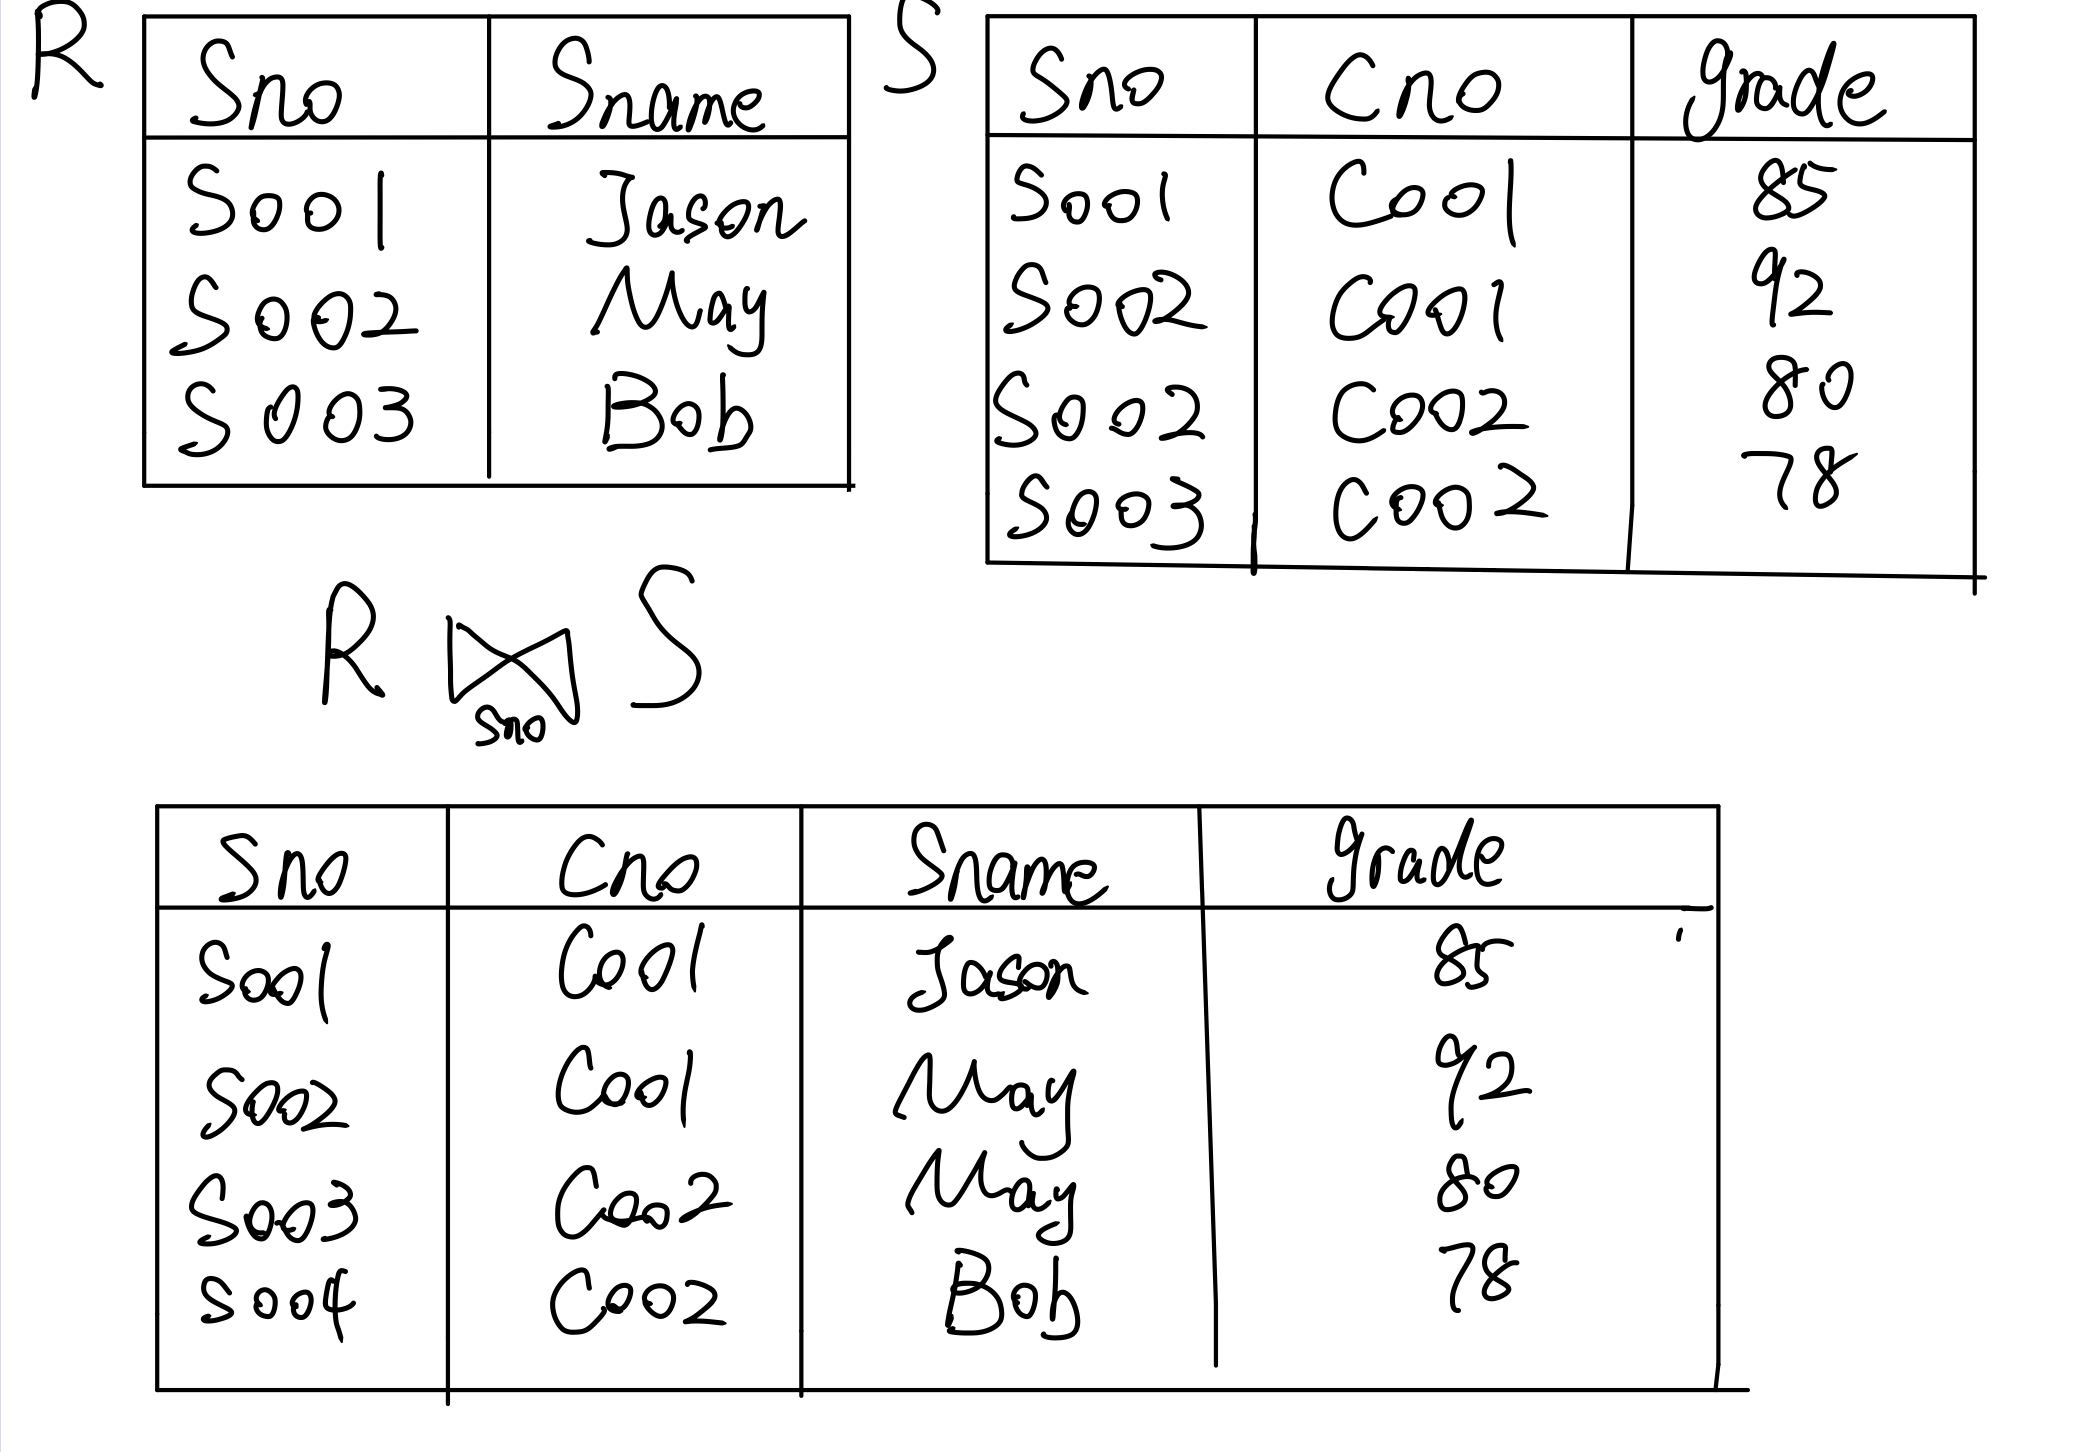 R
Sno Sname
S001 Jason
S002 May
S003 Bob
S
Sno Cno grade
S001 C001 85
S002 C001 92
S002 C002 80
S003 C002 78
R ⋈ S
sno
Sno Cno Sname grade
S001 C001 Jason 85
S002 C001 May 92
S003 C002 May 80
S004 C002 Bob 78